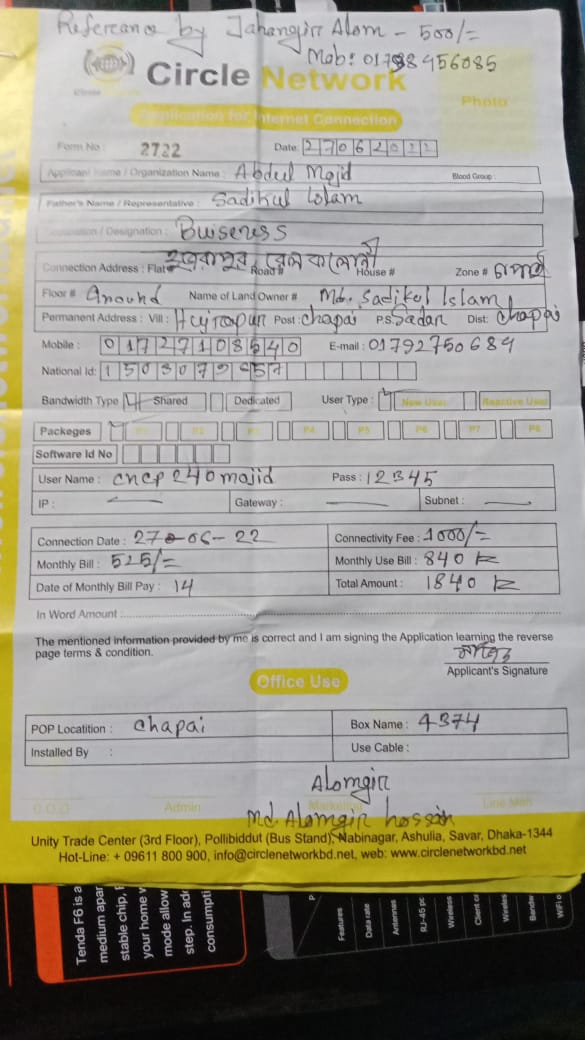 Refereance by Jahangir Alom - 500/=
Mob: 01798456085
Circle Network
Photo
Application for Internet Connection
Form No : 2722 Date: 27062022
Applicant Name / Organization Name : Abdul Majid Blood Group :
Father's Name / Representative : Sadikul Islam
/ Designation : Buiseness
Connection Address : Flat# হুজরাপুর, রেল কলোনী Road # House # Zone #
Floor # Ground Name of Land Owner # Md. Sadikul Islam
Permanent Address : Vill : Hujrapur Post : Chapai P.S. Sadar Dist: Chapai
Mobile : 01727108540 E-mail : 01792750689
National Id:
Bandwidth Type Shared Dedicated User Type : New User Reactive User
Packeges P1 P2 P3 P4 P5 P6 P7 P8
Software Id No
User Name : cncp240majid Pass : 12345
IP : Gateway : Subnet :
Connection Date : 27-06-22 Connectivity Fee : 1000/=
Monthly Bill : 525/= Monthly Use Bill : 840 tk
Date of Monthly Bill Pay : 14 Total Amount : 1840 tk
In Word Amount :
The mentioned information provided by me is correct and I am signing the Application learning the reverse
page terms & condition.
Applicant's Signature
Office Use
POP Locatition : Chapai Box Name : 4374
Installed By : Use Cable :
Alomgir
C.O.O Admin Marketing Line Man
Md. Alomgir hossain
Unity Trade Center (3rd Floor), Pollibiddut (Bus Stand), Nabinagar, Ashulia, Savar, Dhaka-1344
Hot-Line: + 09611 800 900, info@circlenetworkbd.net, web: www.circlenetworkbd.net
Tenda F6 is a
medium apar
stable chip,
your home
mode allow
step. In add
consumpti
Features
Data rate
Antennas
RJ-45 pc
Wireless
Client
Wireless
WiFi